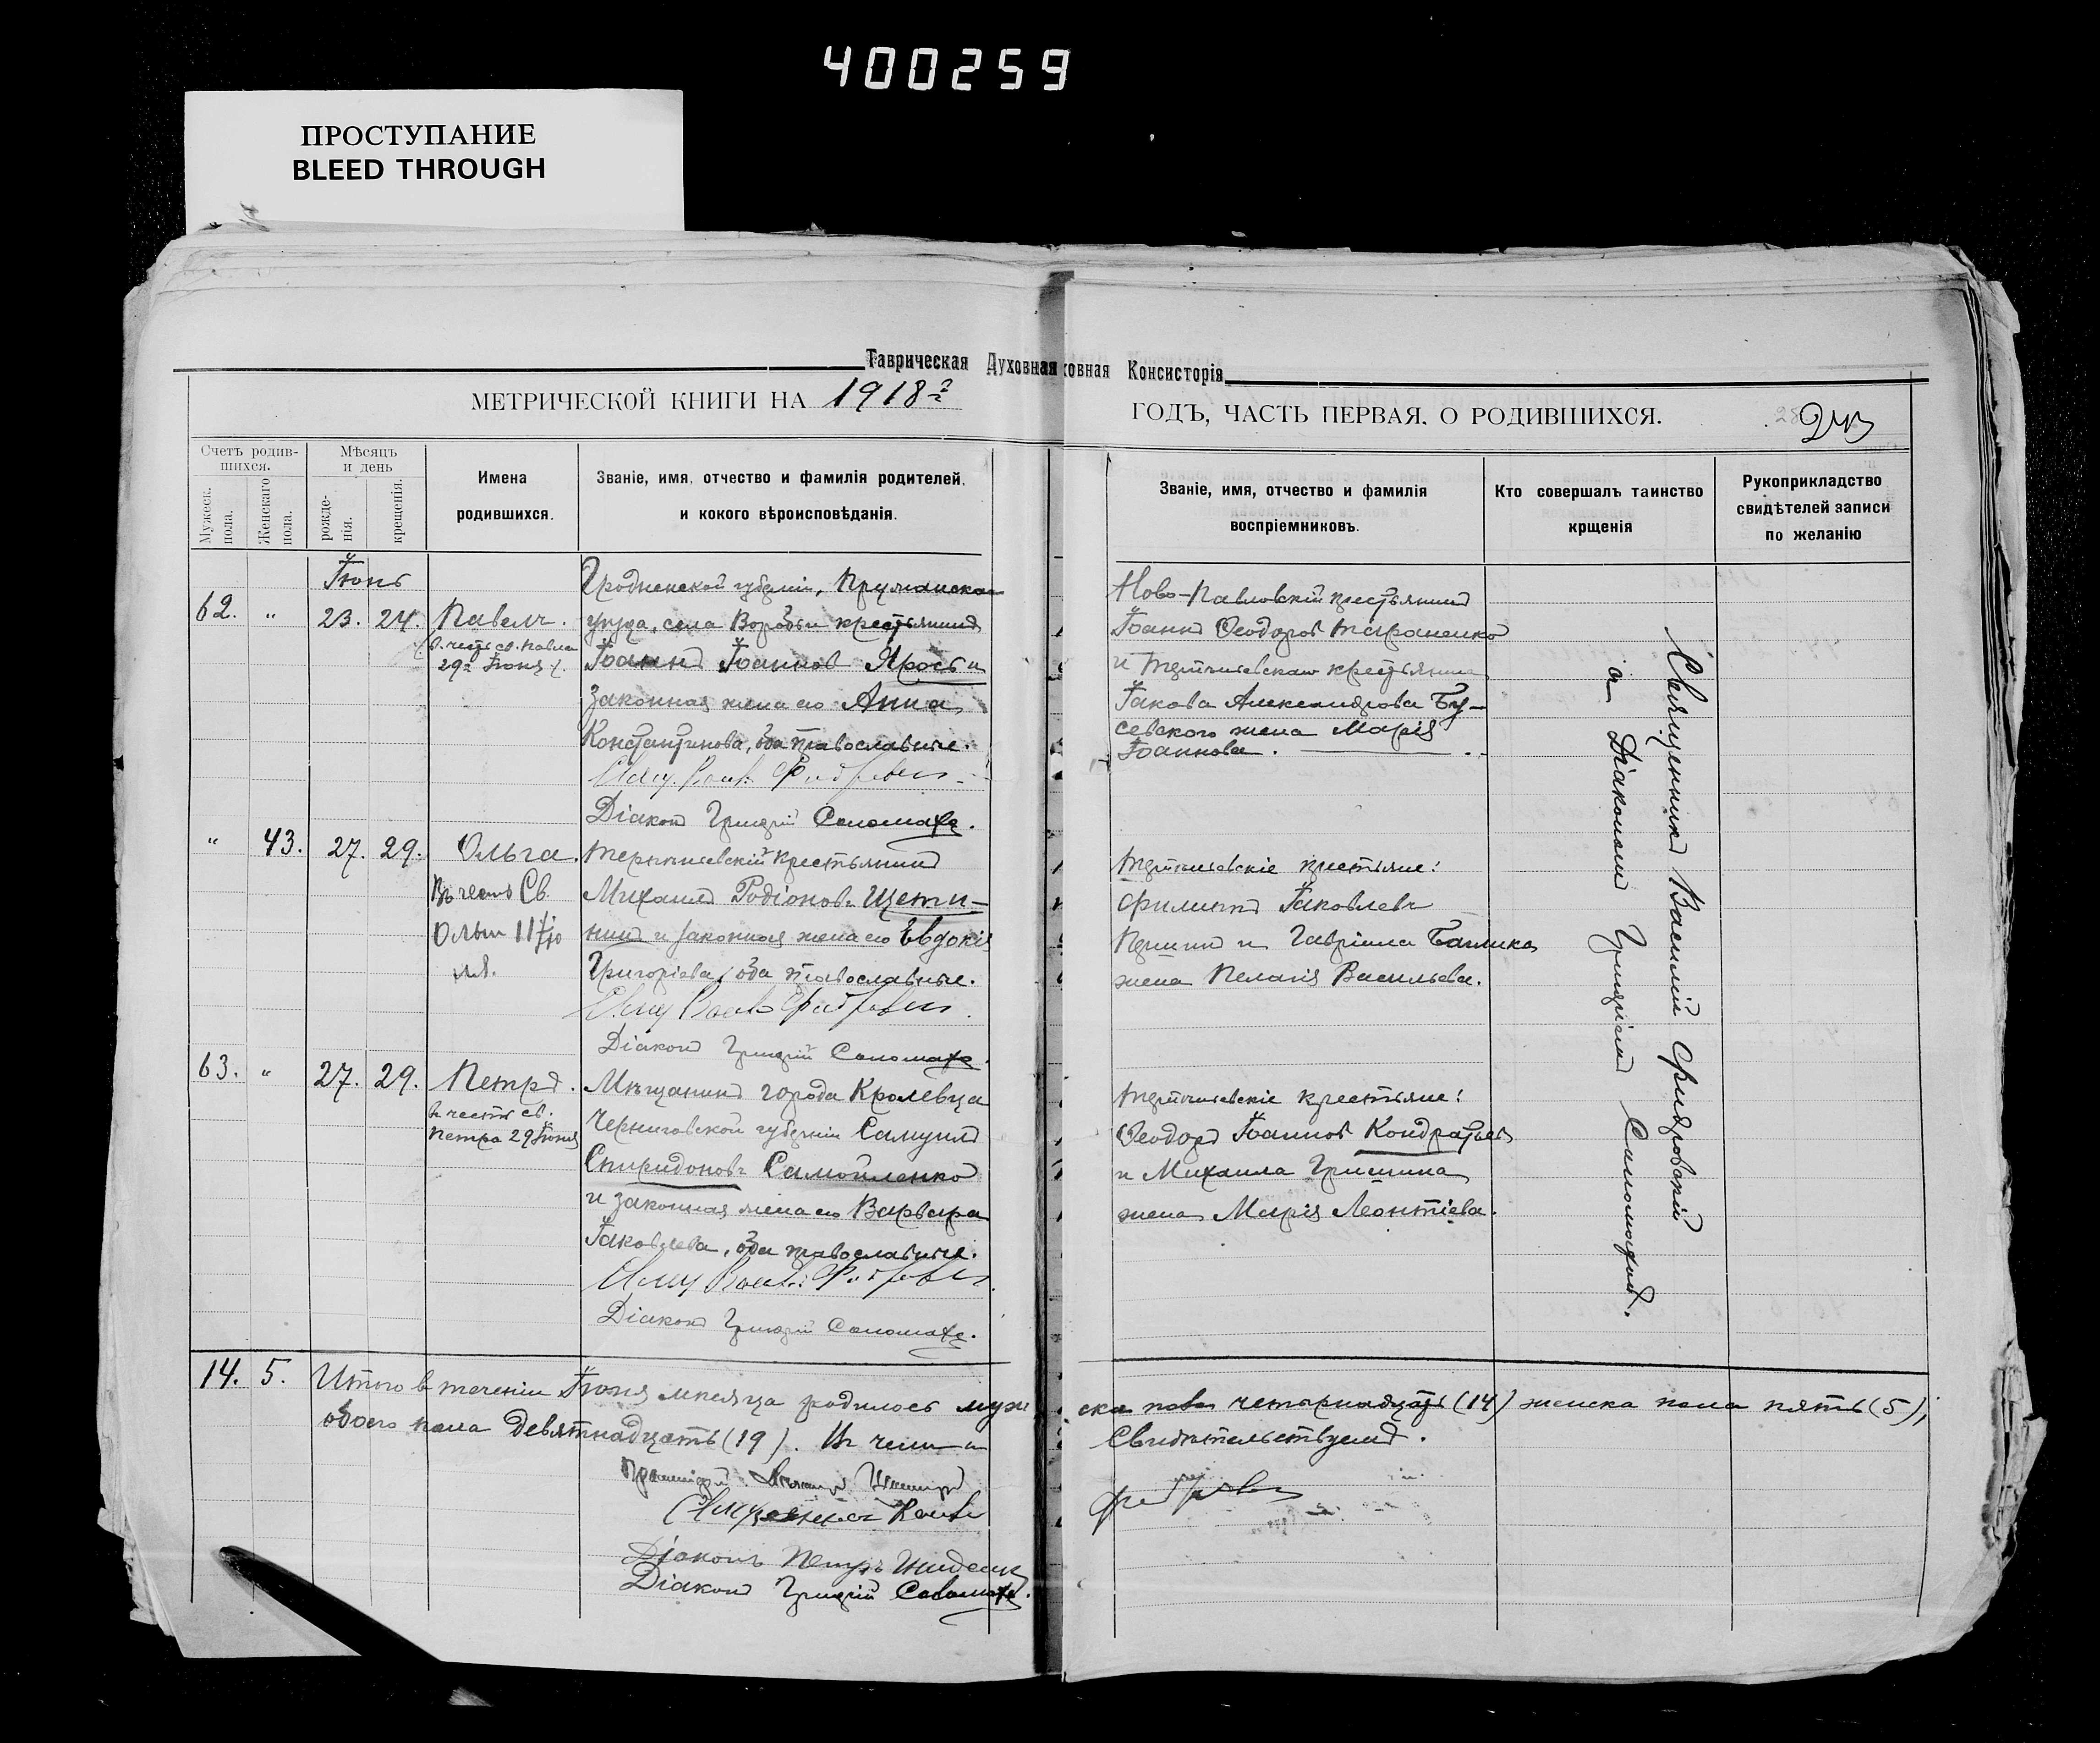 400259
ПРОСТУПАНИЕ
BLEED THROUGH
Таврическая Духовная
ховная Консисторія
МЕТРИЧЕСКОЙ КНИГИ НА 1918 г
ГОДЪ, ЧАСТЬ ПЕРВАЯ, О РОДИВШИХСЯ.
Счетъ родив-
шихся.
Мужеск. пола.
Женскаго пола.
Мѣсяцъ
и день
рожде-
нія.
крещенія.
Имена
родившихся.
Званіе, имя, отчество и фамилія родителей,
и кокого вѣроисповѣданія.
Званіе, имя, отчество и фамилія
воспріемниковъ.
Кто совершалъ таинство
крщенія
Рукоприкладство
свидѣтелей записи
по желанію
Іюнь
62. " 23. 24. Павелъ.
(в честь св. Павла
29го Іюня).
Гродненской губерніи, Пружанскаго
уѣзда, села Воробьи крестьянинъ
Іоаннъ Іоанновъ Ярось и
законная жена его Анна
Константинова, оба православные.
Діаконъ Григорій Соломаха.
Ново-Павловскій крестьянинъ
Іоаннъ Ѳеодоровъ Тараненко
и крестьянина
Іакова Александрова Бу-
севского жена Марія
Іоаннова.
" 43. 27. 29. Ольга.
Въ честь Св.
Ольги 11
крестьянинъ
Михаилъ Родіоновъ Щети-
нинъ и законная жена его Евдокія
Григоріева, оба православные.
Діаконъ Григорій Соломаха.
крестьяне:
Филиппъ Іаковлевъ
и Гавріила
жена Пелагія Васильева.
63. " 27. 29. Петръ.
въ честь св.
Петра 29 Іюня
Мѣщанинъ города Кролевца
Черниговской губерніи Самуилъ
Спиридоновъ Самойленко
и законная жена его Варвара
Іаковлева, оба православные.
Діаконъ Григорій Соломаха.
крестьяне:
Ѳеодоръ Іоанновъ Кондратьевъ
и Михаила Гришина
жена Марія Леонтіева.
Священникъ Василій
и Діакономъ Григоріемъ Соломахой.
14. 5. Итого в теченіи Іюня мѣсяца родилось муже
ска пола четырнадцать (14) женска пола пять (5),
обоего пола девятнадцать (19). Въ чемъ и
свидѣтельствуемъ.
Діаконъ Петръ
Діаконъ Григорій Соломаха.